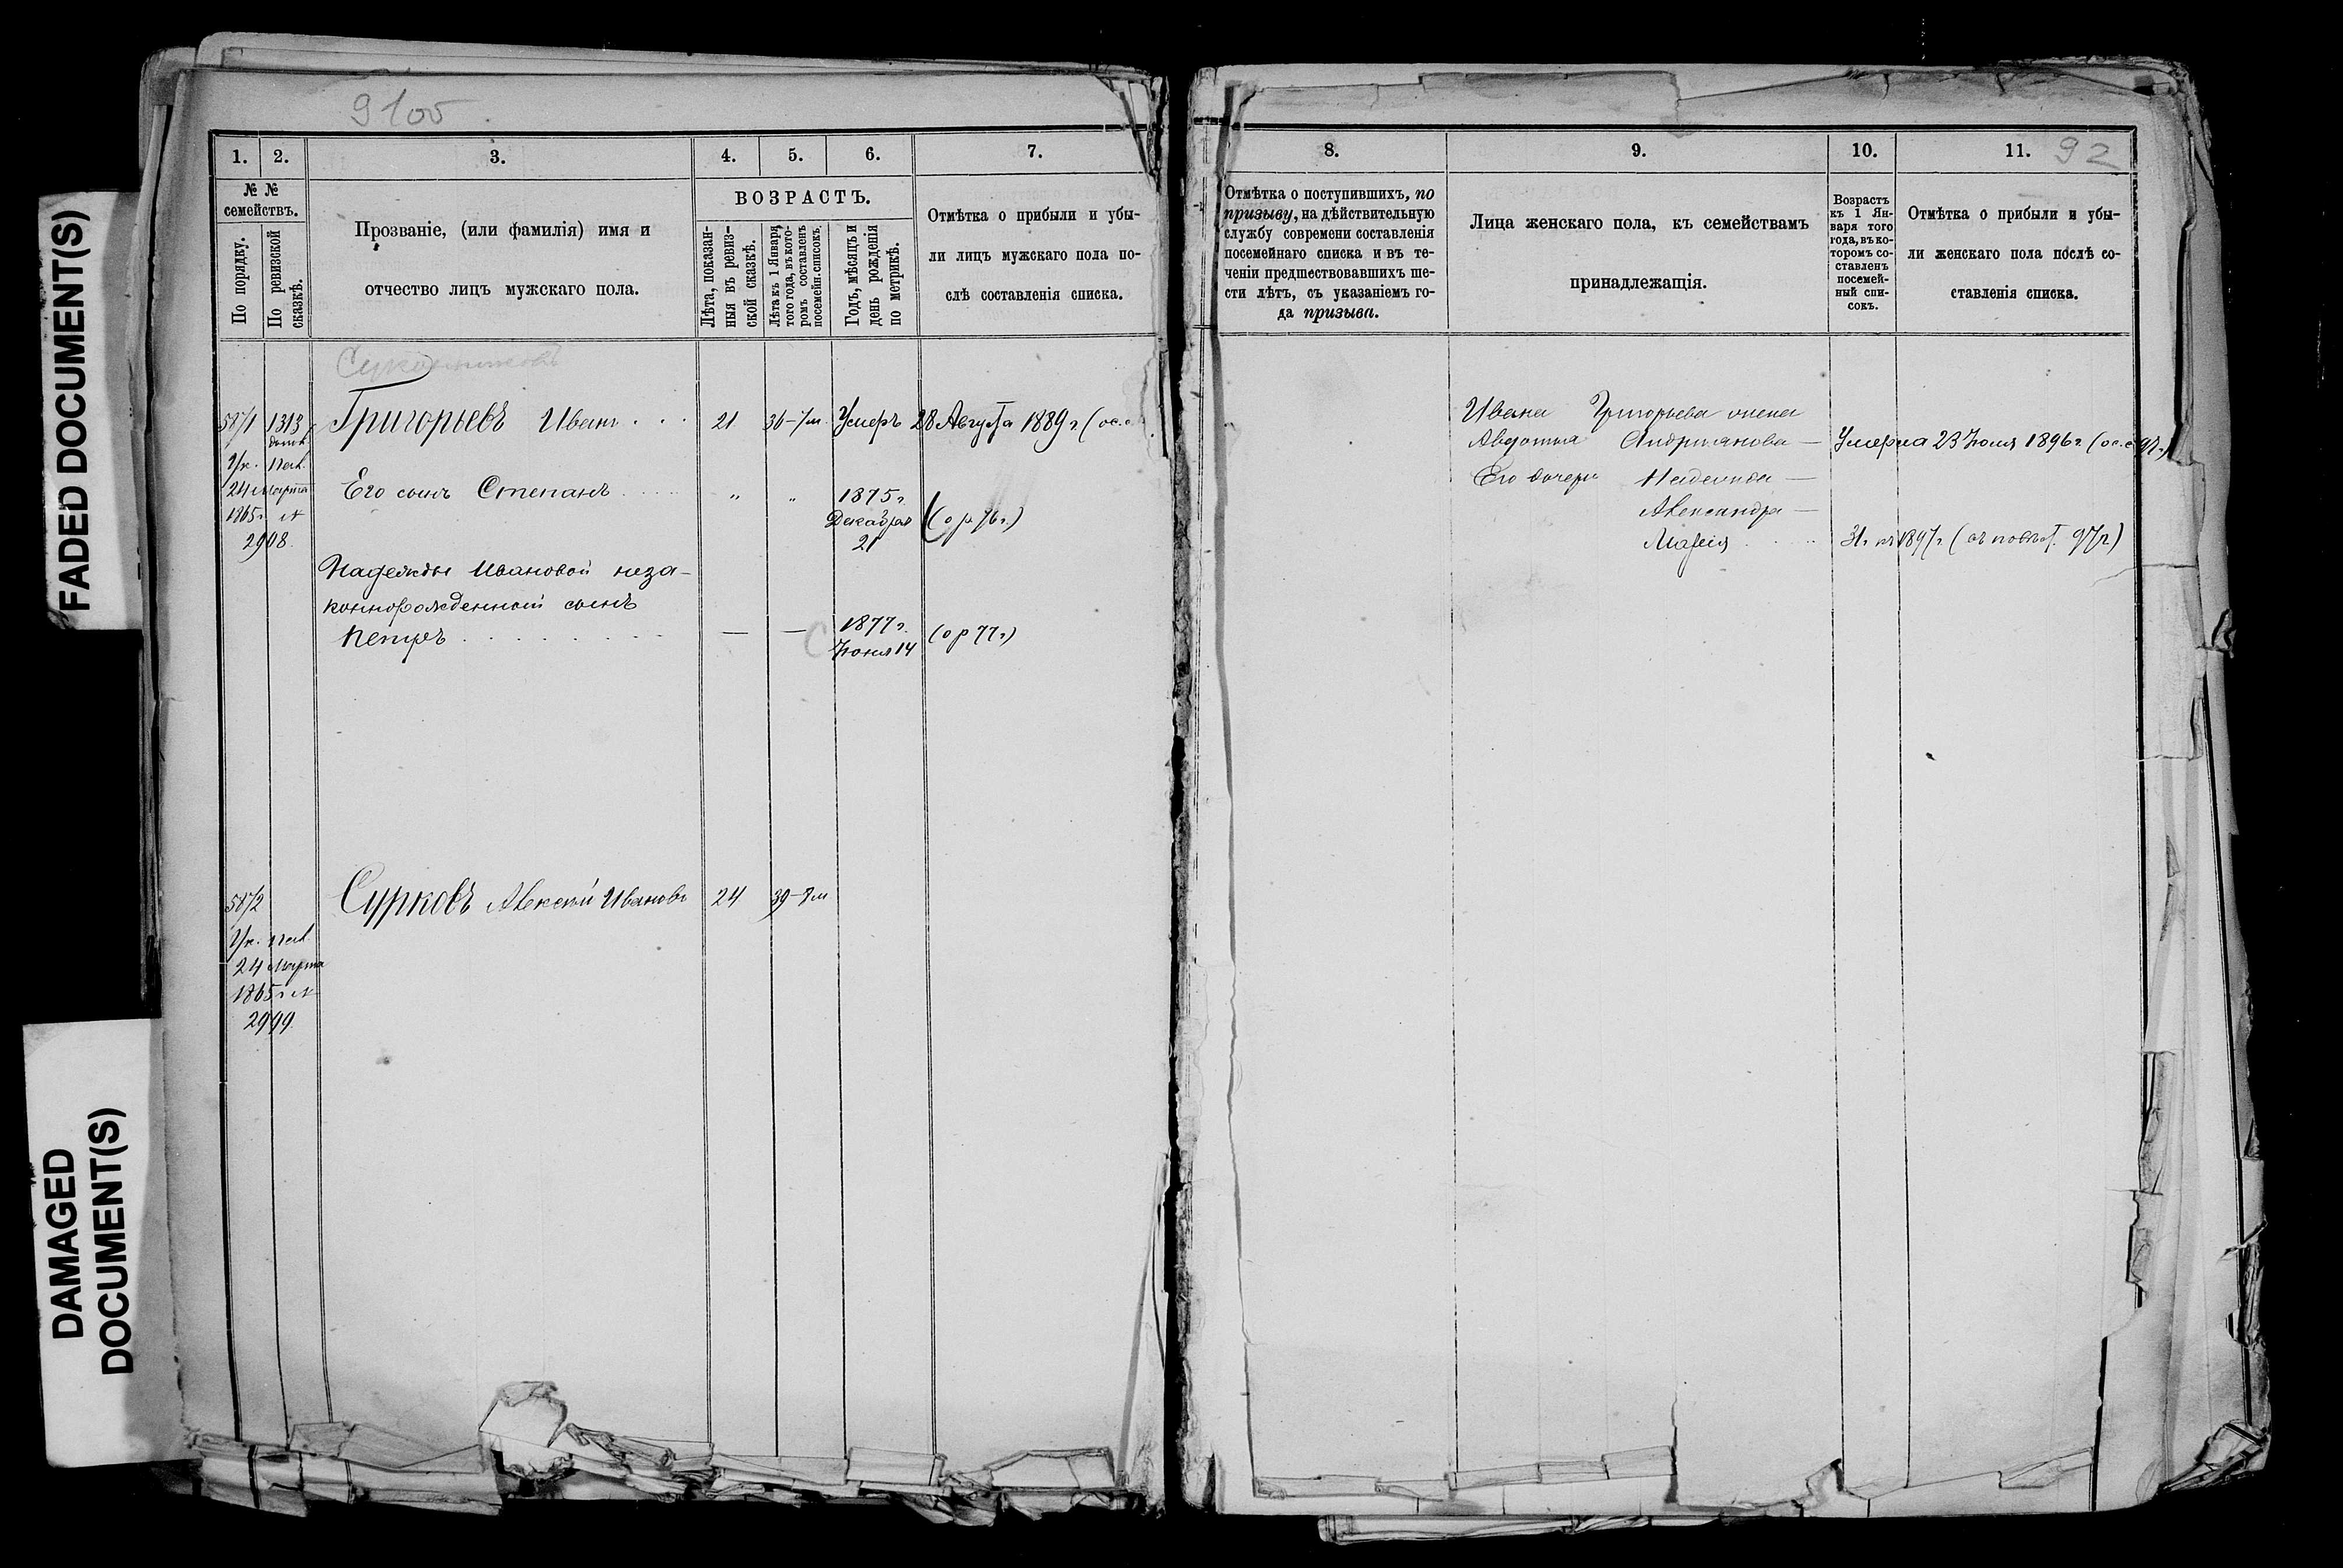 FADED DOCUMENT(S)
DAMAGED
DOCUMENT(S)
9100
1. 2. 3. 4. 5. 6. 7.
№ №
семействъ.
По порядку.
По ревизской
сказкѣ.
Прозваніе, (или фамилія) имя и
отчество лицъ мужскаго пола.
ВОЗРАСТЪ.
Лѣта, показан-
ныя въ ревиз-
ской сказкѣ.
Лѣта къ 1 Января
того года, въ кото-
ромъ составленъ
посемейн. списокъ.
Годъ, мѣсяцъ и
день рожденія
по метрикѣ.
Отмѣтка о прибыли и убы-
ли лицъ мужскаго пола по-
слѣ составленія списка.
587/1 1313 Григорьевъ Иванъ 21 36-7м. Умеръ 28 Августа 1889 г. (ос.
Ук.
24 марта
1865 г. №
2908.
Его сынъ Степанъ „ „ 1875 г.
Декабря
21
(о р 76 г.)
Надежды Ивановой неза-
коннорожденный сынъ
Петръ — — 1877 г.
Іюня 14
(о р 77 г)
587/2 Сурковъ Алексѣй Ивановъ 24 39-7м
Ук.
24 Марта
1865 г №
2999.
8. 9. 10. 11. 92
Отмѣтка о поступившихъ, по
призыву, на дѣйствительную
службу современи составленія
посемейнаго списка и въ те-
ченіи предшествовавшихъ ше-
сти лѣтъ, съ указаніемъ го-
да призыва.
Лица женскаго пола, къ семействамъ
принадлежащія.
Возрастъ
къ 1 Ян-
варя того
года, въ ко-
торомъ со-
ставленъ
посемей-
ный спи-
сокъ.
Отмѣтка о прибыли и убы-
ли женскаго пола послѣ со-
ставленія списка.
Ивана Григорьева жена
Авдотья Андріянова — Умерла 23 Іюля 1896 г. (ос.
Его дочери Надежда —
Александра —
Марія 31 г. къ 1897 г.